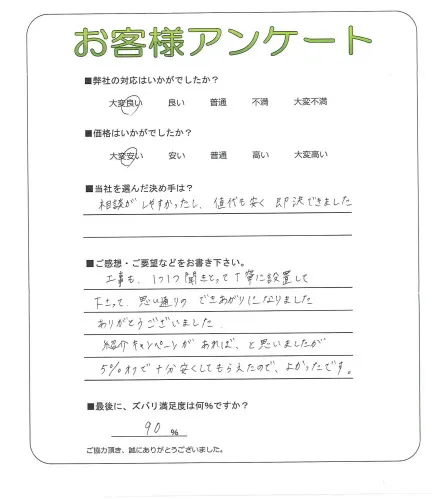 お客様アンケート
■弊社の対応はいかがでしたか？
大変良い 良い 普通 不満 大変不満
■価格はいかがでしたか？
大変安い 安い 普通 高い 大変高い
■当社を選んだ決め手は？
相談がしやすかったし、値段も安く 即決できました
■ご感想・ご要望などをお書き下さい。
工事も、1つ1つ聞きとって丁寧に設置して
下さって、思い通りの できあがりになりました
ありがとうございました.
紹介キャンペーンがあれば、と思いましたが
5%オフで十分安くしてもらえたので、よかったです。
■最後に、ズバリ満足度は何%ですか？
90 %
ご協力頂き、誠にありがとうございました。